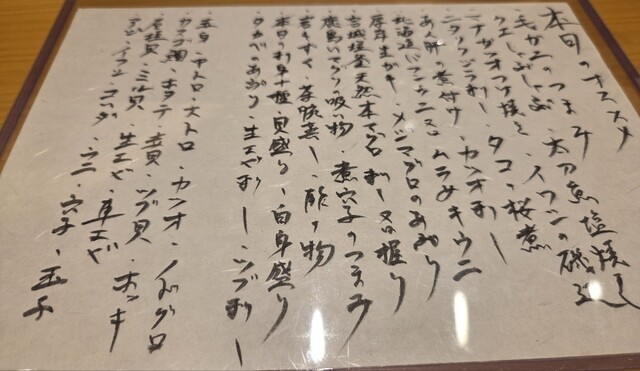 本日のオススメ
毛がにのつまみ 太刀魚塩焼き
クエしゃぶしゃぶ、イワシの磯
マナガツオつけ焼き タコ桜煮
ニタリクジラ刺し、カツオ刺し
あん肝の煮付け
北海道バフンウニ ムラサキウニ
厚岸生がき メジマグロのあぶり
宮城塩釜天然本マグロ 刺し 又は握り
鹿島ハマグリの吸い物 煮穴子のつまみ
岩もずく 茶碗蒸し 酢の物
本日の刺身十種 貝盛り 白身盛り
タカベのあぶり 生エビ刺し ツブ刺し
赤身 中トロ 大トロ カツオ ノドグロ
ホタテ 赤貝 ツブ貝 ホッキ
石垣貝 ミル貝 生エビ 車エビ
アジ イワシ コハダ ウニ 穴子 玉子